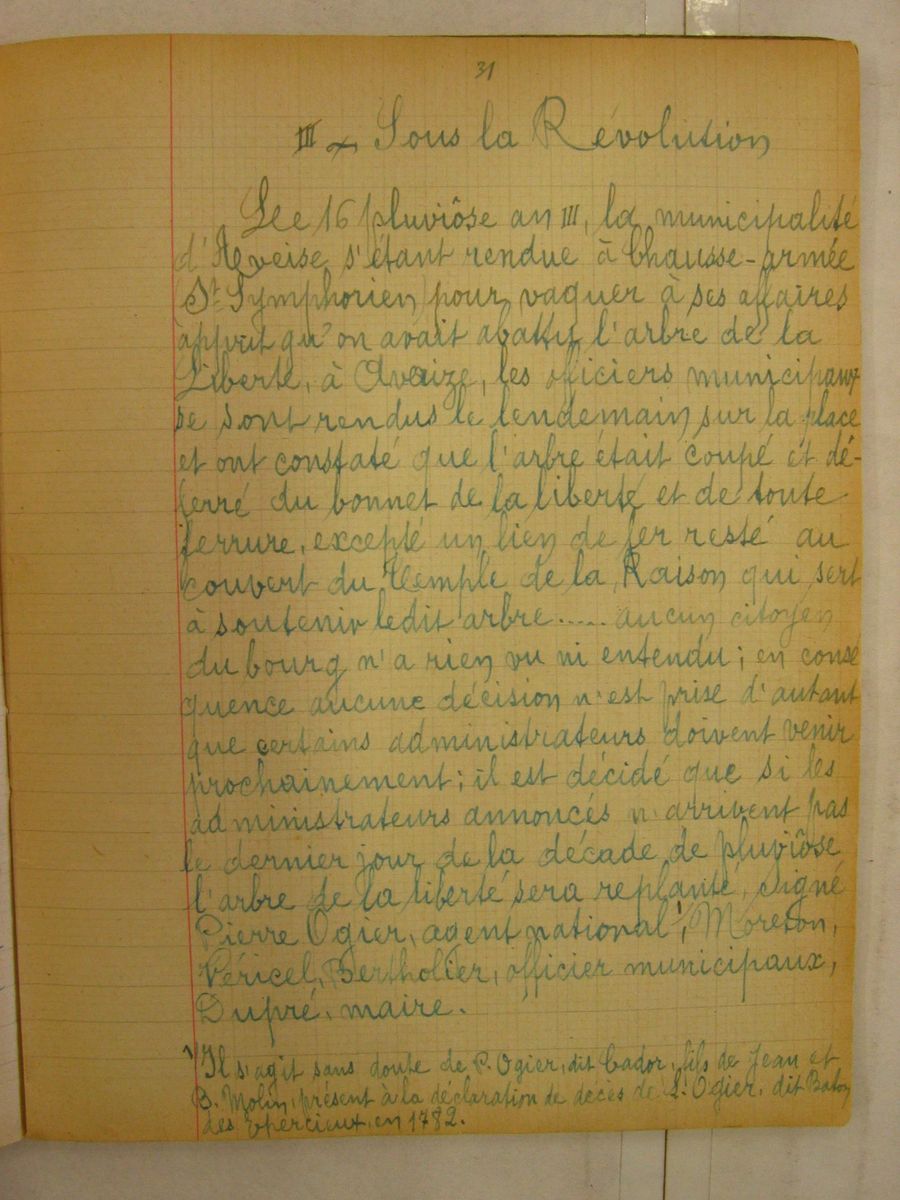 31
III - Sous la Révolution
Le 16 pluviôse an III, la municipalité
d'Aveise s'étant rendue à Chausse-armée
(St Symphorien) pour vaquer à ses affaires
apprit qu'on avait abattu l'arbre de la
Liberté, à Avaize, les officiers municipaux
se sont rendus le lendemain sur la place
et ont constaté que l'arbre était coupé et dé-
ferré du bonnet de la liberté et de toute
ferrure, excepté un lien de fer resté au
couvert du Temple de la Raison qui sert
à soutenir ledit arbre ..... aucun citoyen
du bourg n'a rien vu ni entendu ; en consé
quence aucune décision n'est prise d'autant
que certains administrateurs doivent venir
prochainement ; il est décidé que si les
administrateurs annoncés n'arrivent pas
le dernier jour de la décade de pluviôse
l'arbre de la liberté sera replanté, signé
Pierre Ogier, agent national¹, Moreton,
Véricel, Bertholier, officier municipaux,
Dupré, maire.
1/ Il s'agit sans doute de P. Ogier, dit Cador, fils de Jean et
B. Molin, présent à la déclaration de décès de L. Ogier, dit Baton
des Epercieux, en 1782.